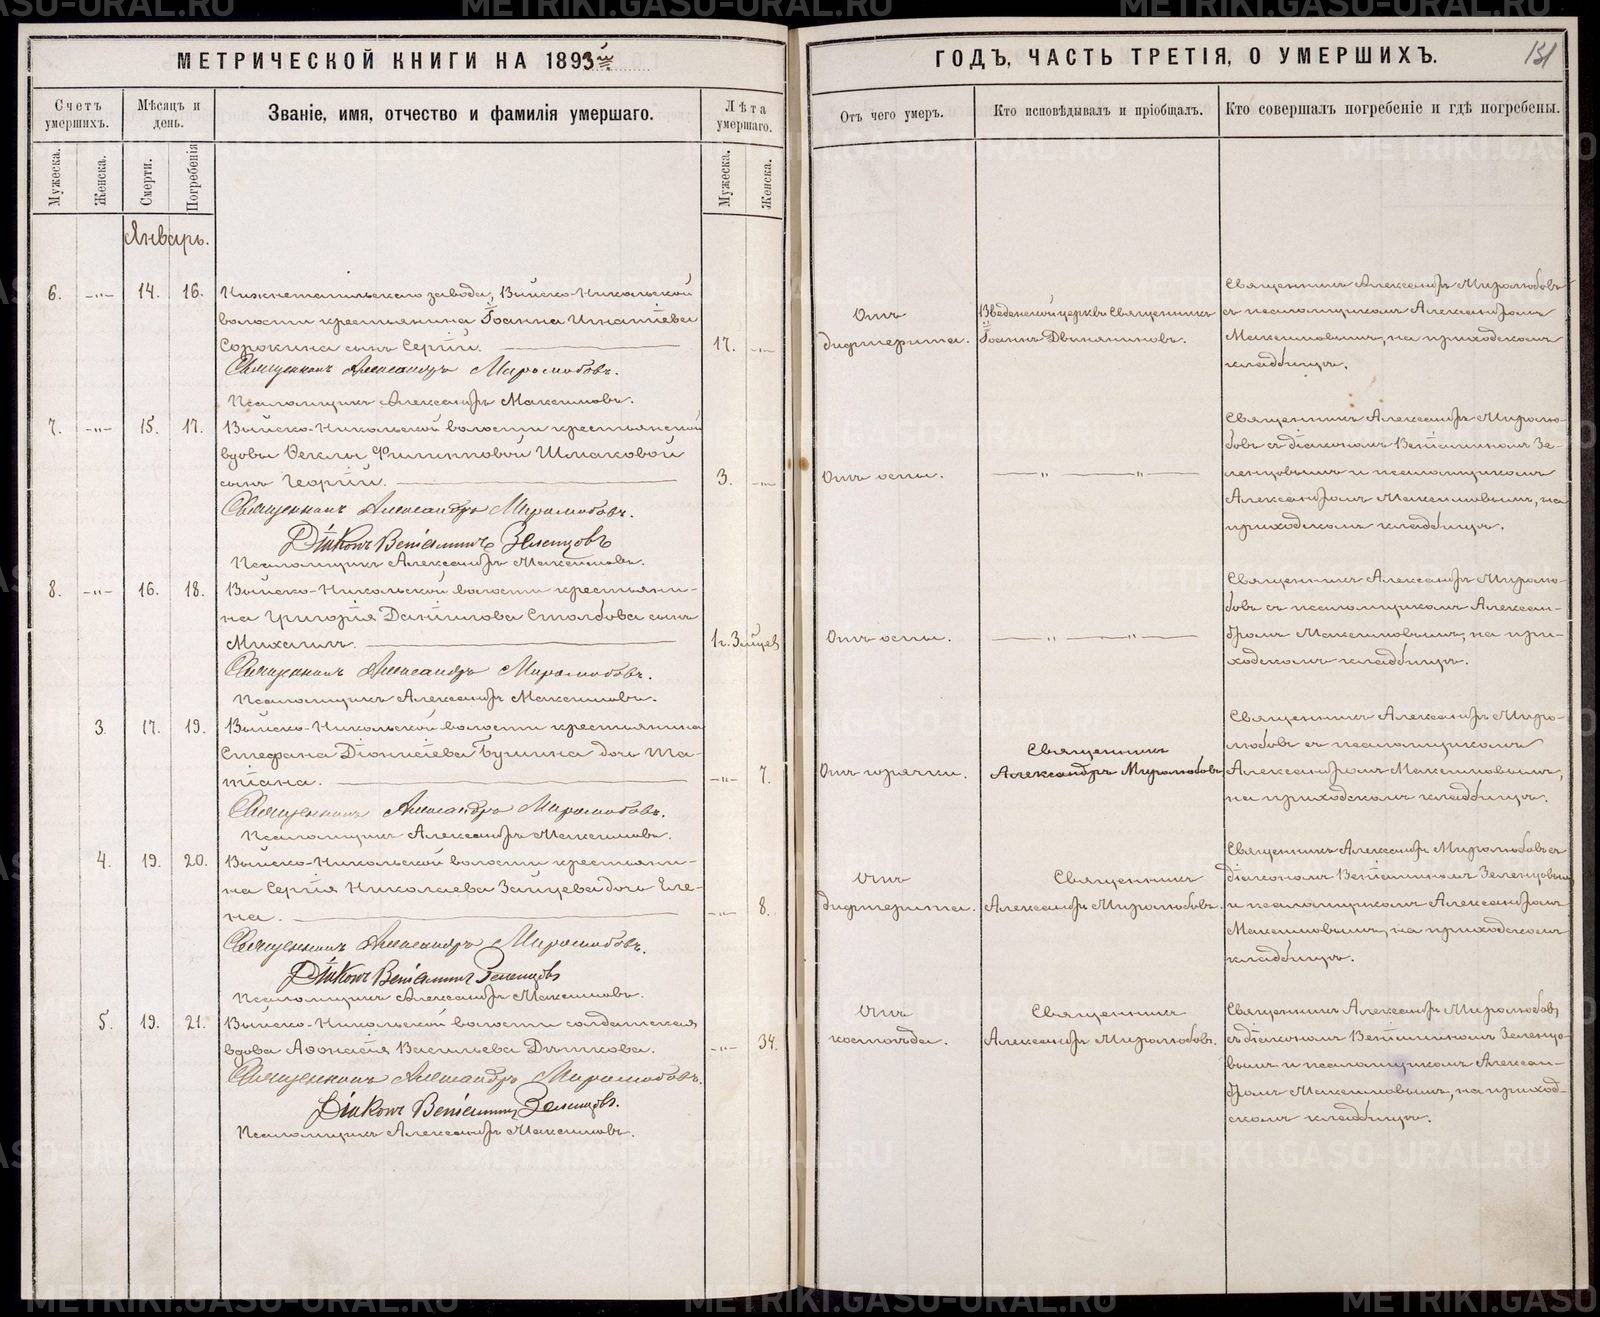 МЕТРИЧЕСКОЙ КНИГИ НА 1893й
Счетъ умершихъ.
Мѣсяцъ и день.
Званіе, имя, отчество и фамилія умершаго.
Лѣта умершаго.
Мужеска.
Женска.
Смерти.
Погребенія
Мужеска.
Женска.
Январь.
6. -"- 14. 16.
Нижнетагильскаго завода, Выйско-Никольской
волости крестьянина Іоанна Игнатіева
Сорокина сынъ Сергій.
17. -"-
Священникъ Александръ Миролюбовъ.
Псаломщикъ Александръ Максимовъ.
7. -"- 15. 17.
Выйско-Никольской волости крестьянской
вдовы Ѳеклы Филипповой Шмаковой
сынъ Георгій.
3. -"-
Священникъ Александръ Миролюбовъ.
Діаконъ Веніаминъ Зеленцовъ
Псаломщикъ Александръ Максимовъ.
8. -"- 16. 18.
Выйско-Никольской волости крестьяни-
на Григорія Даніилова Столбова сынъ
Михаилъ.
1 г. 3 мѣсяц
Священникъ Александръ Миролюбовъ.
Псаломщикъ Александръ Максимовъ.
3. 17. 19.
Выйско-Никольской волости крестьянина
Стефана Діонисіева Бушина дочь Та-
тіана.
-"- 7.
Священникъ Александръ Миролюбовъ.
Псаломщикъ Александръ Максимовъ.
4. 19. 20.
Выйско-Никольской волости крестьяни-
на Сергія Николаева Зайцева дочь Еле-
на.
-"- 8.
Священникъ Александръ Миролюбовъ.
Діаконъ Веніаминъ Зеленцовъ
Псаломщикъ Александръ Максимовъ.
5. 19. 21.
Выйско-Никольской волости солдатская
вдова Аѳонасія Васильева Дѣткова.
-"- 34.
Священникъ Александръ Миролюбовъ.
Діаконъ Веніаминъ Зеленцовъ.
Псаломщикъ Александръ Максимовъ.
ГОДЪ, ЧАСТЬ ТРЕТІЯ, О УМЕРШИХЪ.
131
Отъ чего умеръ.
Кто исповѣдывалъ и пріобщалъ.
Кто совершалъ погребеніе и гдѣ погребены.
Отъ
дифтерита.
Введенской церкви священникъ
Іоаннъ Двиняниновъ.
Священникъ Александръ Миролюбовъ
съ псаломщикомъ Александромъ
Максимовымъ, на приходскомъ
кладбищѣ.
Отъ оспы.
— " — " —
Священникъ Александръ Миролю-
бовъ съ діакономъ Веніаминомъ Зе-
ленцовымъ и псаломщикомъ
Александромъ Максимовымъ, на
приходскомъ кладбищѣ.
Отъ оспы.
— " — " —
Священникъ Александръ Миролю-
бовъ съ псаломщикомъ Алексан-
дромъ Максимовымъ, на при-
ходскомъ кладбищѣ.
Отъ горячки.
Священникъ
Александръ Миролюбовъ
Священникъ Александръ Миро-
любовъ съ псаломщикомъ
Александромъ Максимовымъ,
на приходскомъ кладбищѣ.
Отъ
дифтерита.
Священникъ
Александръ Миролюбовъ.
Священникъ Александръ Миролюбовъ съ
діакономъ Веніаминомъ Зеленцовымъ
и псаломщикомъ Александромъ
Максимовымъ, на приходскомъ
кладбищѣ.
Отъ
костоѣда.
Священникъ
Александръ Миролюбовъ.
Священникъ Александръ Миролюбовъ
съ діакономъ Веніаминомъ Зеленцо-
вымъ и псаломщикомъ Алексан-
дромъ Максимовымъ, на приход-
скомъ кладбищѣ.
METRIKI.GASO-URAL.RU